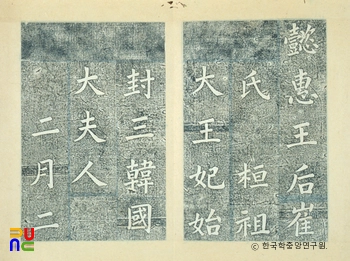 懿惠王后崔
氏 桓祖
大王妃始
封三韓國
大夫人
二月二
© 한국학중앙연구원